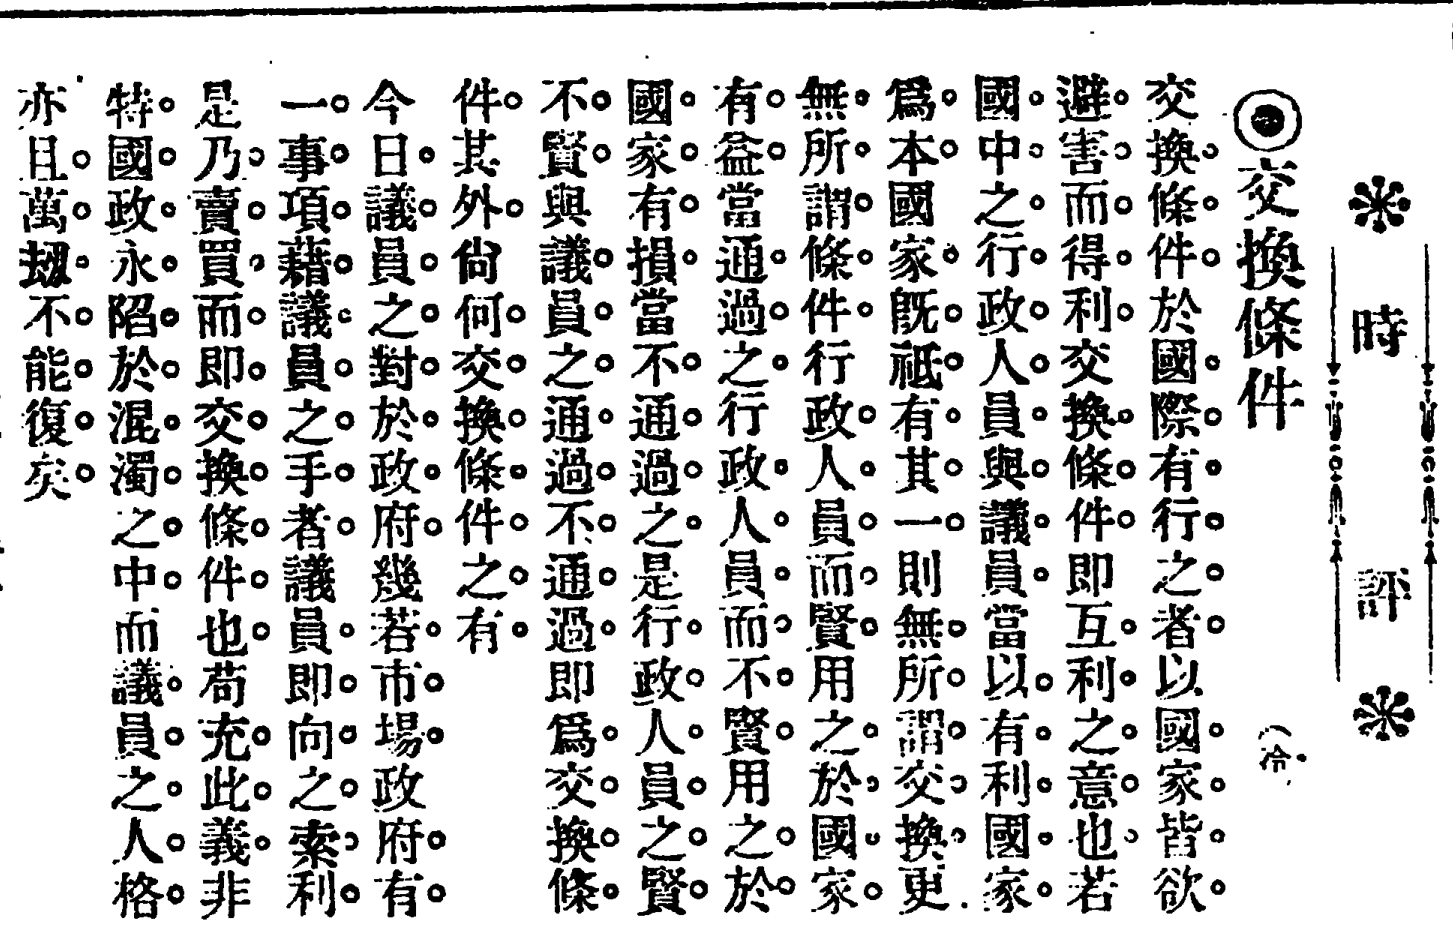 時評
◉交換條件
（冷）
交換條件於國際有行之者以國家皆欲
避害而得利交換條件即互利之意也若
國中之行政人員與議員當以有利國家
爲本國家旣祗有其一則無所謂交換更
無所謂條件行政人員而賢用之於國家
有益當通過之行政人員而不賢用之於
國家有損當不通過之是行政人員之賢
不賢與議員之通過不通過即爲交換條
件其外尙何交換條件之有
今日議員之對於政府幾若市場政府有
一事項藉議員之手者議員即向之索利
是乃賣買而即交換條件也苟充此義非
特國政永陷於混濁之中而議員之人格
亦且萬刼不能復矣